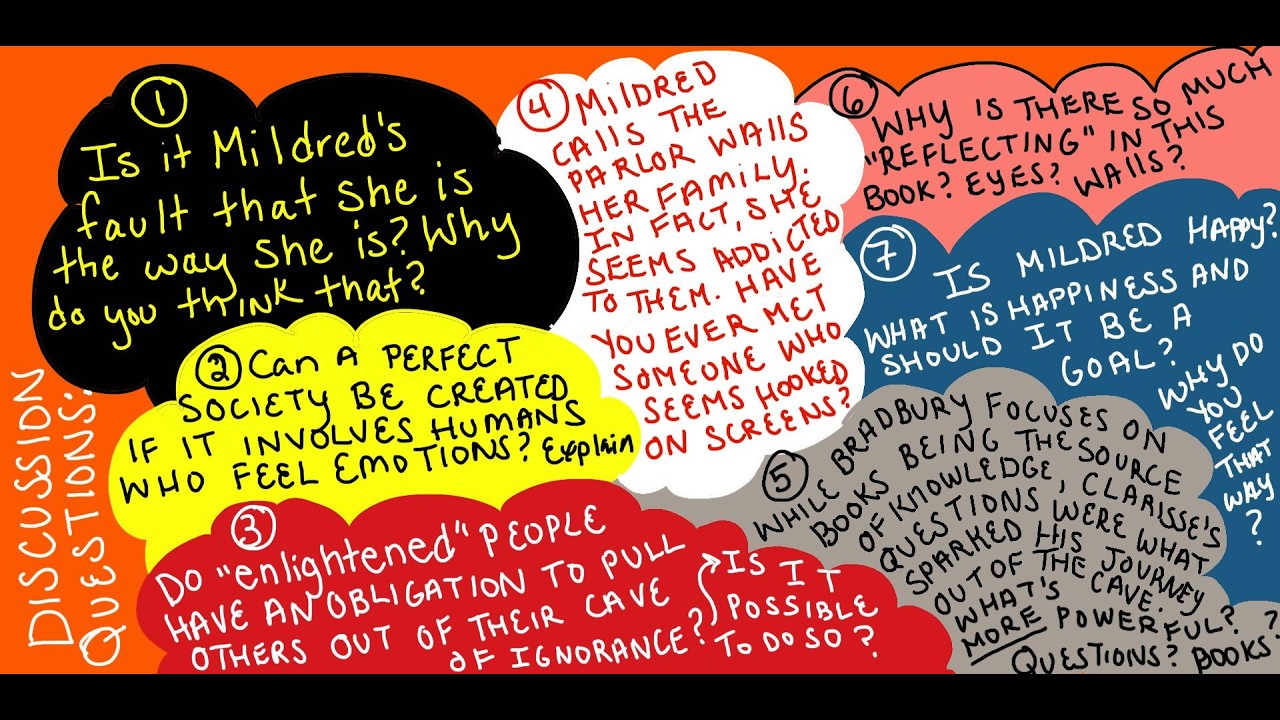 DISCUSSION
QUESTIONS:
1
Is it Mildred's
fault that she is
the way she is? Why
do you think that?
2 Can A PERFECT
SOCIETY BE CREATED
IF IT INVOLVES HUMANS
WHO FEEL EMOTIONS? Explain
3
DO "enlightened" PEOPLE
HAVE AN OBLIGATION TO PULL
OTHERS OUT OF THEIR CAVE
OF IGNORANCE?
IS IT
POSSIBLE
TO DO SO?
4 MILDRED
CALLS THE
PARLOR WALLS
HER FAMILY.
IN FACT, SHE
SEEMS ADDICTED
TO THEM. HAVE
YOU EVER MET
SOMEONE WHO
SEEMS HOOKED
ON SCREENS?
5
WHILE BRADBURY FOCUSES ON
BOOKS BEING THE SOURCE
OF KNOWLEDGE, CLARISSE'S
QUESTIONS WERE WHAT
SPARKED HIS JOURNEY
OUT OF THE CAVE.
WHAT'S
MORE POWERFUL?
QUESTIONS? BOOKS?
6
WHY IS THERE SO MUCH
"REFLECTING" IN THIS
BOOK? EYES? WALLS?
7
IS MILDRED HAPPY?
WHAT IS HAPPINESS AND
SHOULD IT BE A
GOAL?
WHY DO
YOU
FEEL
THAT
WAY
?